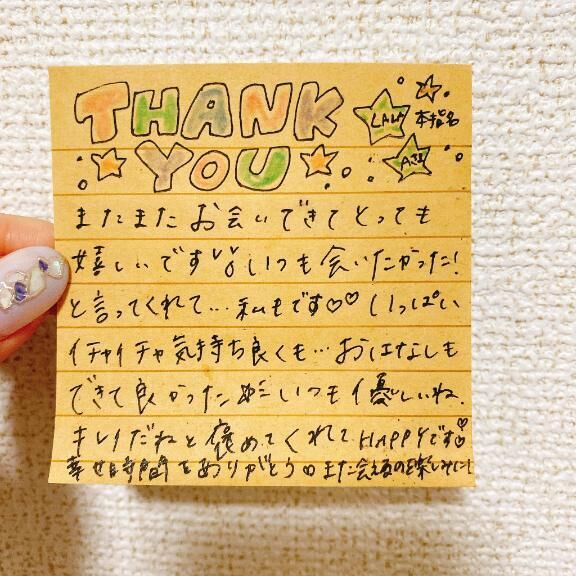 THANK
YOU
LALA
本指名
Aさま
またまたお会いできてとっても
嬉しいです!! いつも会いたかった!
と言ってくれて… 私もです♡♡ いっぱい
イチャイチャ気持ち良くも… おはなしも
できて良かった いつも優しいね。
キレイだねと褒めてくれて HAPPYです♡
幸せ時間をありがとう また会えるの楽しみに